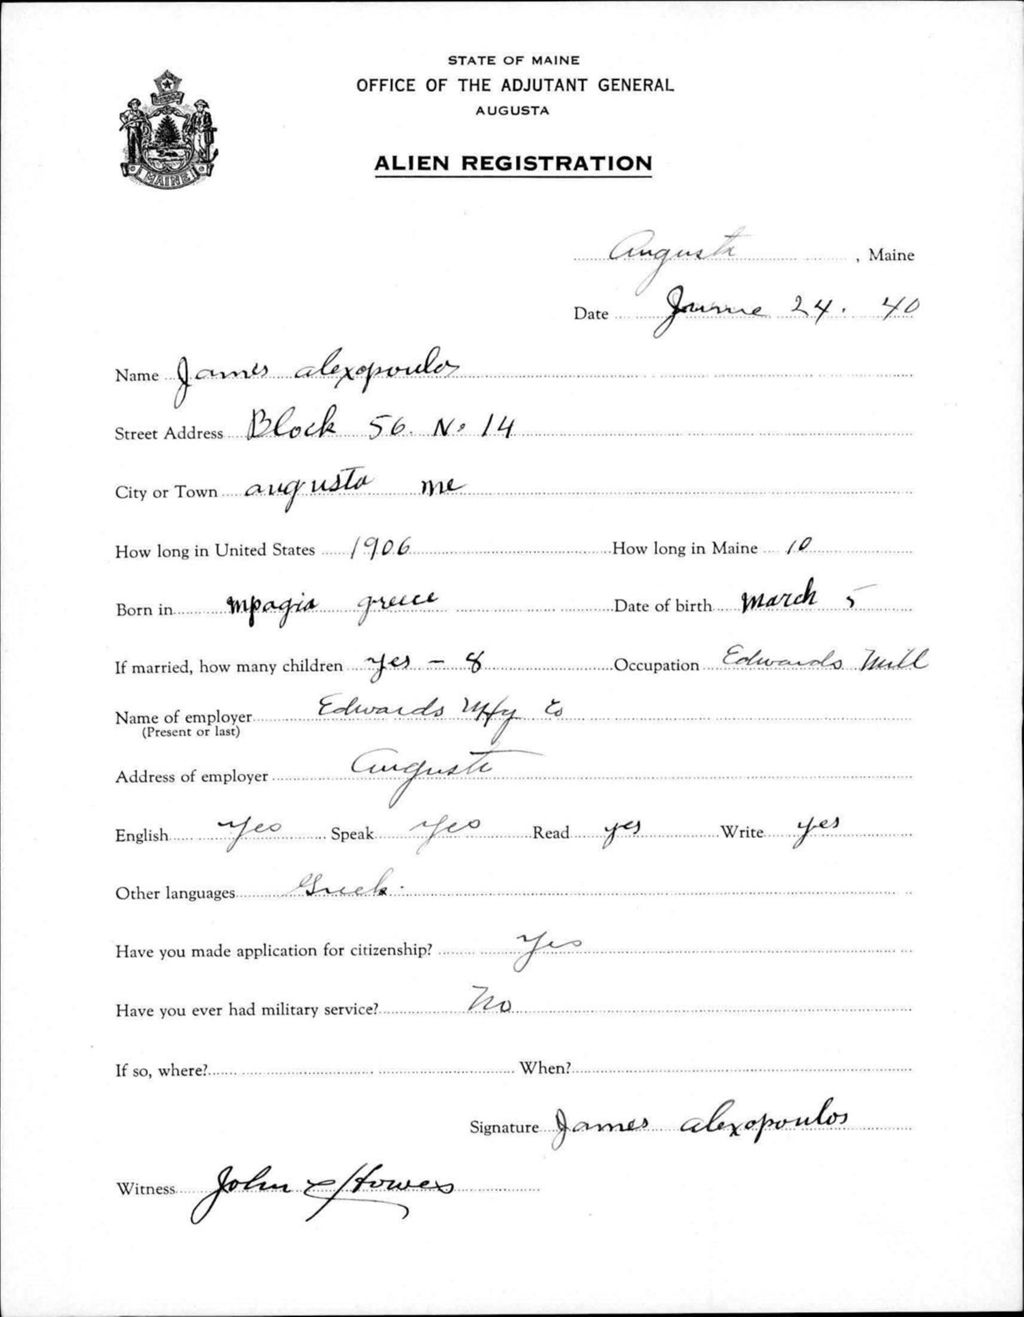 STATE OF MAINE
OFFICE OF THE ADJUTANT GENERAL
AUGUSTA
ALIEN REGISTRATION
MAINE
Augusta, Maine
Date June 24. 40
Name James alexopoulos
Street Address Block 56. No 14
City or Town augusta me
How long in United States 1906 How long in Maine 10
Born in mpagia greece Date of birth march 5
If married, how many children yes - 8 Occupation Edwards Mill
Name of employer Edwards Mfg Co
(Present or last)
Address of employer Augusta
English Yes Speak Yes Read yes Write yes
Other languages Greek.
Have you made application for citizenship? Yes
Have you ever had military service? No
If so, where? When?
Signature James alexopoulos
Witness John Howes